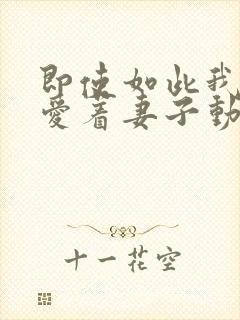 即使如此我
愛着妻子動
十一花空